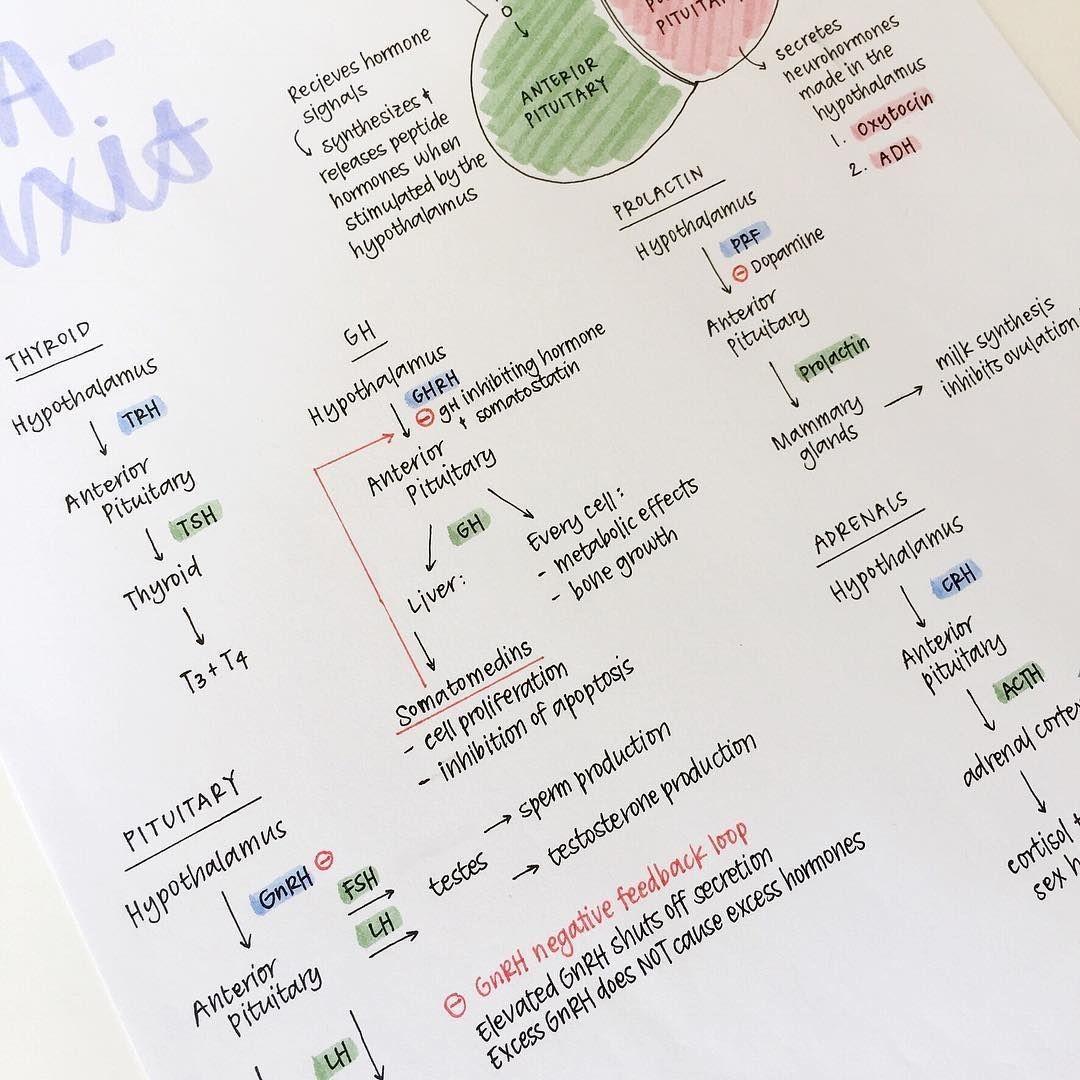 A-
xis
Recieves hormone
signals
synthesizes &
releases peptide
hormones when
stimulated by the
hypothalamus
ANTERIOR
PITUITARY
PITUITARY
secretes
neurohormones
made in the
hypothalamus
1. Oxytocin
2. ADH
PROLACTIN
Hypothalamus
PRF
⊖ Dopamine
Anterior
Pituitary
Prolactin
Mammary
glands
milk synthesis
inhibits ovulation
THYROID
Hypothalamus
TRH
Anterior
Pituitary
TSH
Thyroid
T3 + T4
GH
Hypothalamus
GHRH
⊖ gH inhibiting hormone
+ somatostatin
Anterior
Pituitary
GH
Liver:
Every cell:
- metabolic effects
- bone growth
Somatomedins
- cell proliferation
- inhibition of apoptosis
ADRENALS
Hypothalamus
CRH
Anterior
pituitary
ACTH
adrenal corte
cortisol +
sex h
PITUITARY
Hypothalamus
GnRH ⊖
FSH
LH
testes
sperm production
testosterone production
Anterior
Pituitary
LH
⊖ GnRH negative feedback loop
Elevated GnRH shuts off secretion
Excess GnRH does NOT cause excess hormones